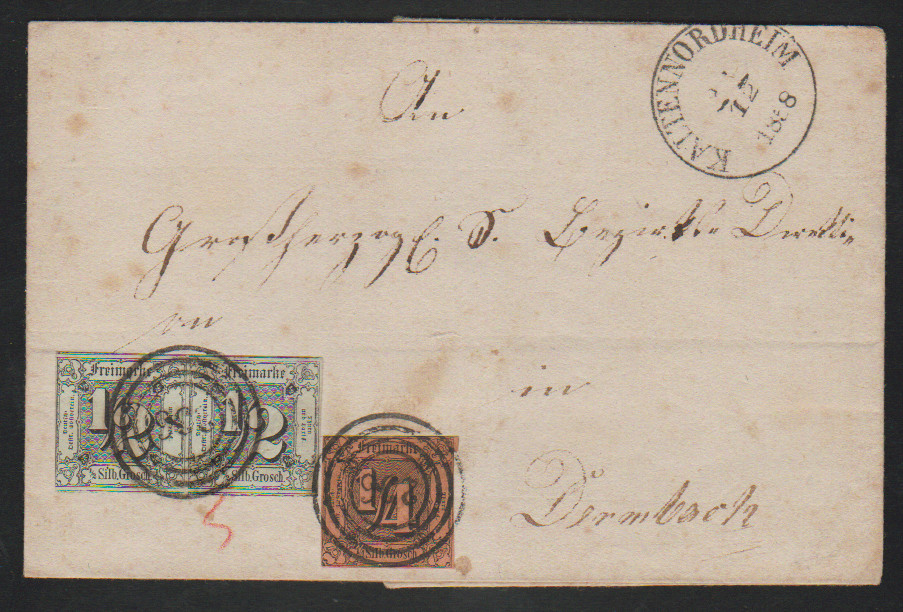 KALTENNORDHEIM
12
1858
An
Großherzogl. S. Bezirks Direkti-
on
in
Dermbach
Freimarke Freimarke
1/2 1/2
Silb. Grosch. Silb. Grosch.
Freimarke
1/4
Silb. Grosch.